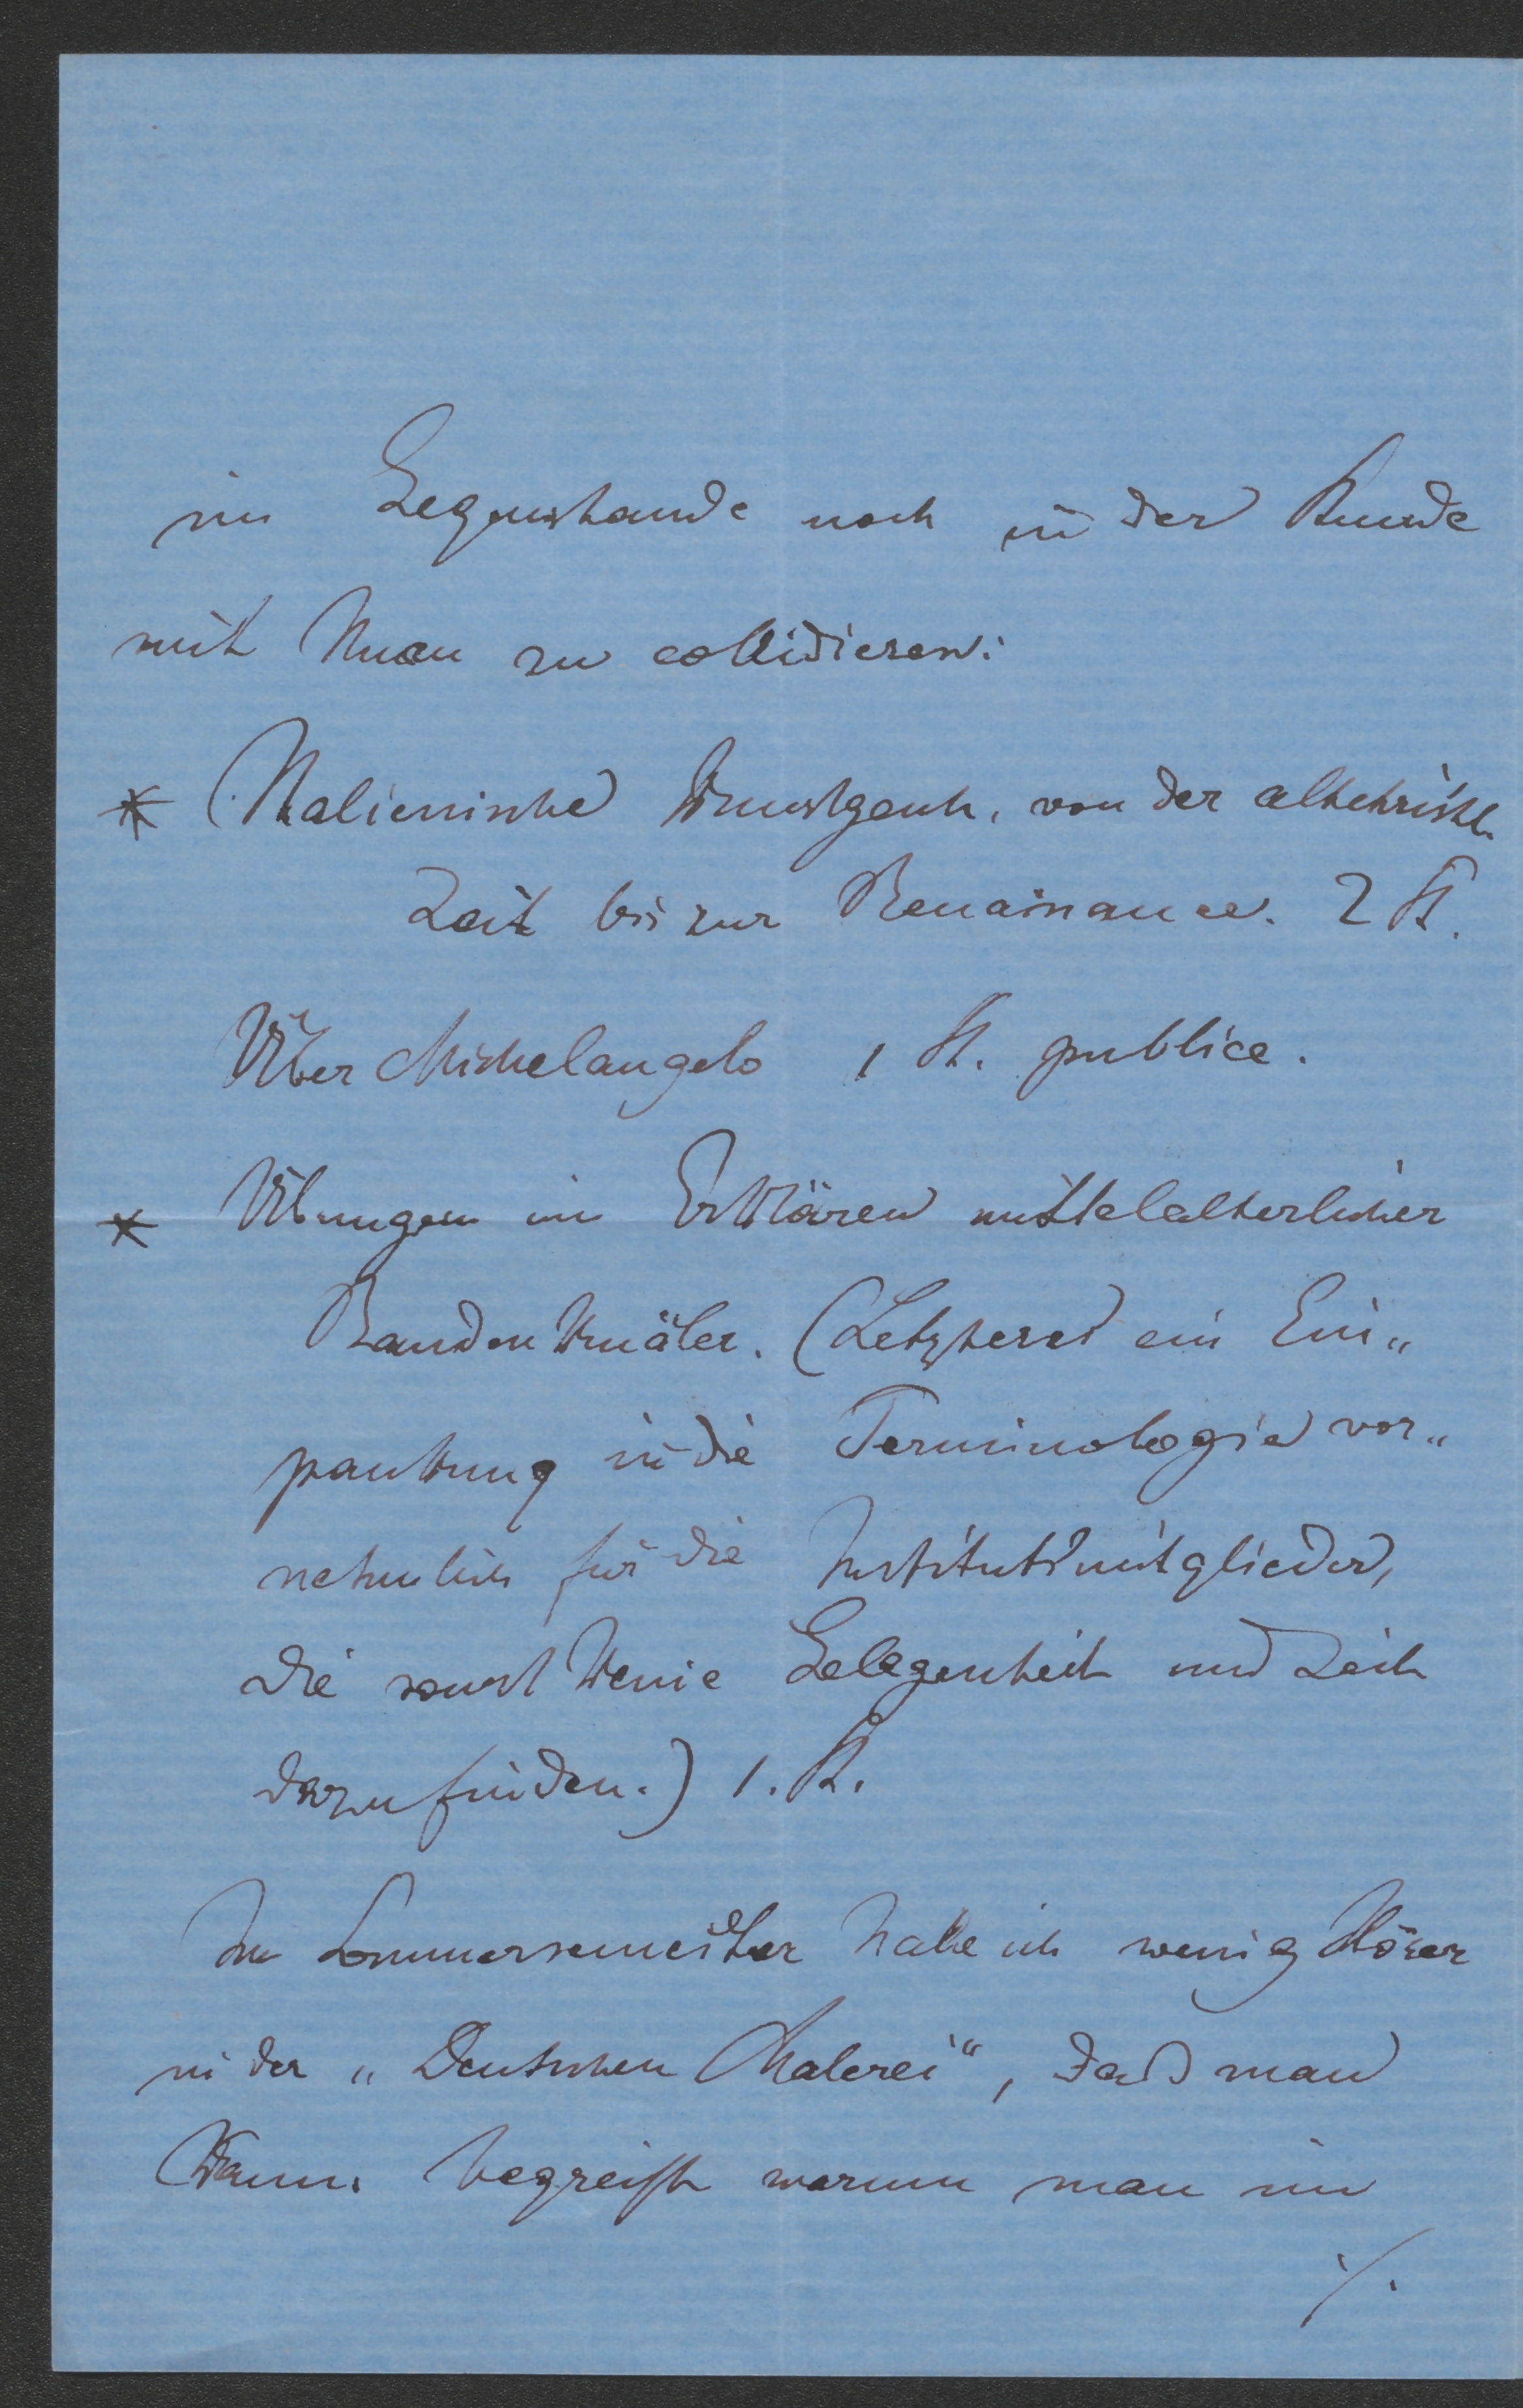 im Gegenstande noch in der Stunde
mit Ihnen zu collidieren:
* Italienische Kunstgesch. von der altchristl.
Zeit bis zur Renaissance. 2 St.
Über Michelangelo 1 St. publice.
* Übungen im Erklären mittelalterlicher
Baudenkmäler. (Letzteres ein Ein„
paukung in die Terminologie vor„
nehmlich für die Institutsmitglieder,
die sonst keine Gelegenheit und Zeit
dazu finden.) 1. St.
Im Sommersemester habe ich wenig Hörer
in der „Deutschen Malerei“, daß man
kaum begreift warum man im
./.